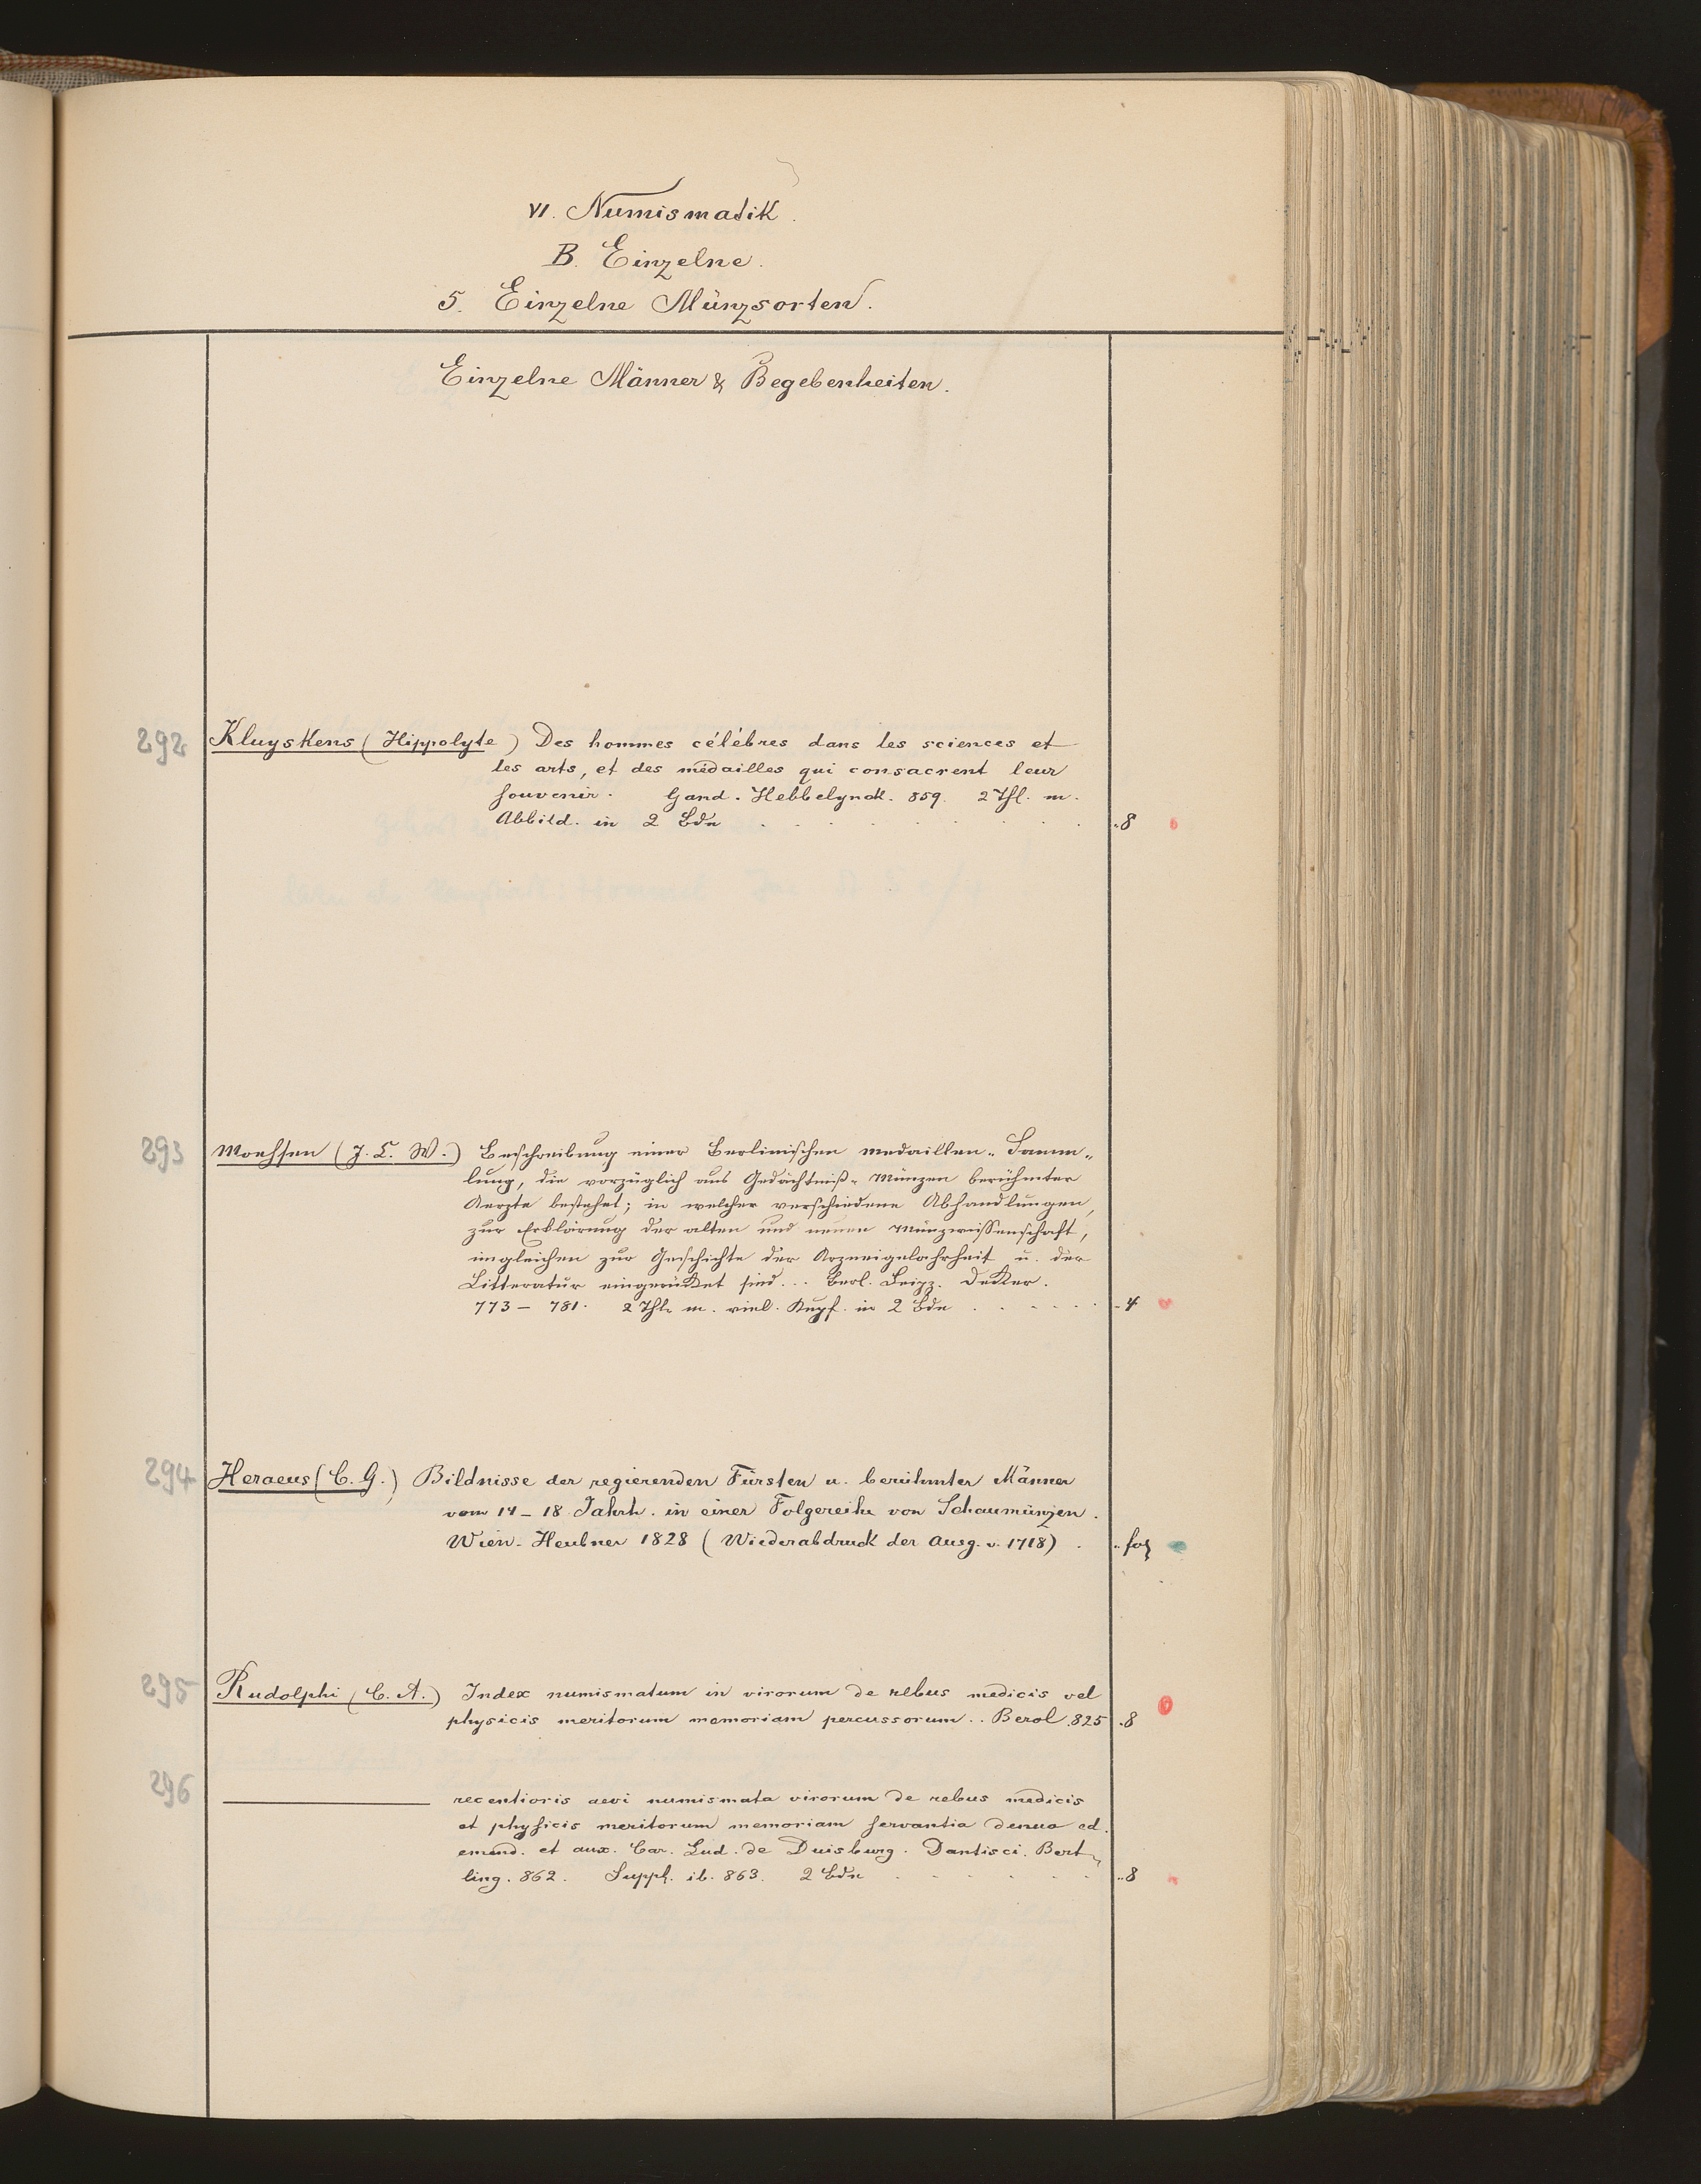 VI. Numismatik.
B. Einzelne.
5. Einzelne Münzsorten.
Einzelne Männer & Begebenheiten.
292 Kluyskens (Hippolyte) Des hommes célébres dans les sciences et
les arts, et des médailles qui consacrent leur
souvenir. Gand. Hebbelynck. 859. 2 Thl. m.
Abbild. in 2 Bdn . . . . . . . . 8
293 Moehsen (J. C. W.) Beschreibung einer Berlinischen Medaillen-Samm-
lung, die vorzüglich aus Gedächtniß-Münzen berühmter
Aerzte bestehet; in welcher verschiedene Abhandlungen,
zur Erklärung der alten und neuen Münzwissenschaft,
imgleichen zur Geschichte der Arzneigelahrheit u. der
Litteratur eingerücket sind... Berl. Leipz. Decker.
773 – 781. 2 Thle m. viel. Kupf. in 2 Bdn . . . . . . 4
294 Heraeus (C. G.) Bildnisse der regierenden Fürsten u. berühmter Männer
vom 14 – 18. Jahrh. in einer Folgereihe von Schaumünzen.
Wien. Heubner 1828 (Wiederabdruck der Ausg. v. 1718) . fol
295 Rudolphi (C. A.) Index numismatum in virorum de rebus medicis vel
physicis meritorum memoriam percussorum.. Berol. 825 . 8
296 ——— recentioris aevi numismata virorum de rebus medicis
et physicis meritorum memoriam servantia denuo ed.
emend. et aux. Car. Lud. de Duisburg. Dantisci. Bert-
ling. 862. Suppl. ib. 863. 2 Bde . . . . . . 8